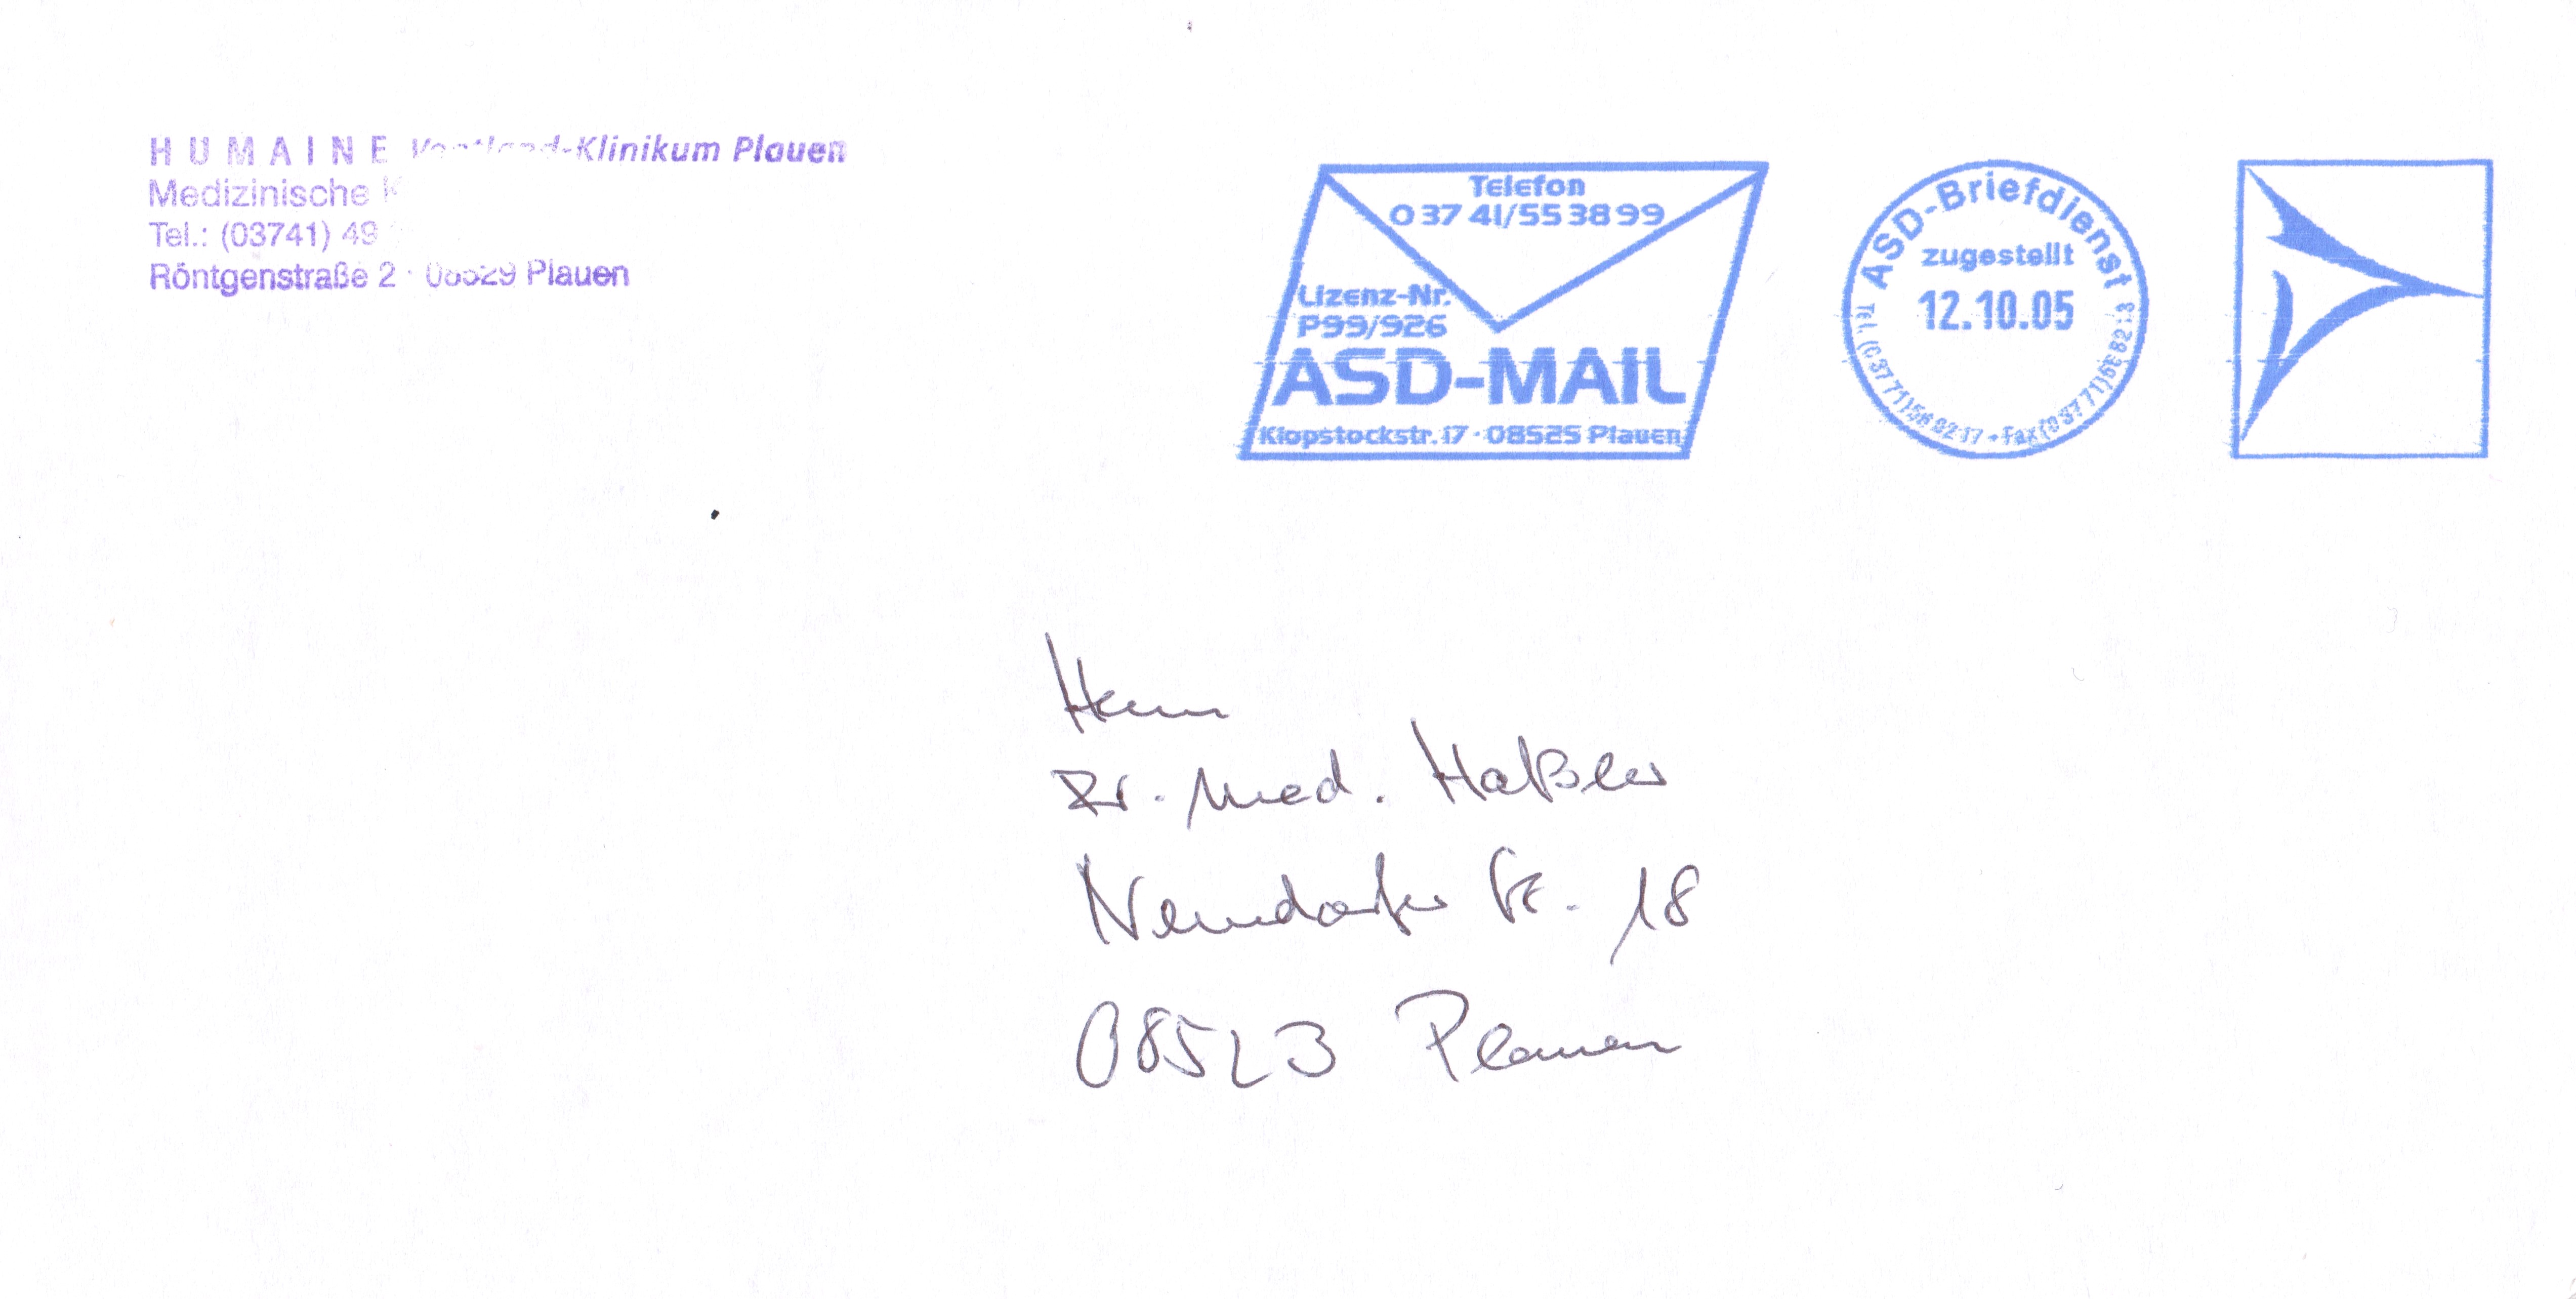 HUMAINE Vogtland-Klinikum Plauen
Medizinische K
Tel.: (03741) 49
Röntgenstraße 2 · 08529 Plauen
Telefon
0 37 41/55 38 99
Lizenz-Nr.
P99/926
ASD-MAIL
Klopstockstr. 17 · 08525 Plauen
ASD-Briefdienst
zugestellt
12.10.05
Tel. (0 37 71) 56 82 17 • Fax (0 37 71) 56 82 13
Herrn
Dr. med. Haßler
Neundorfer Str. 18
08523 Plauen